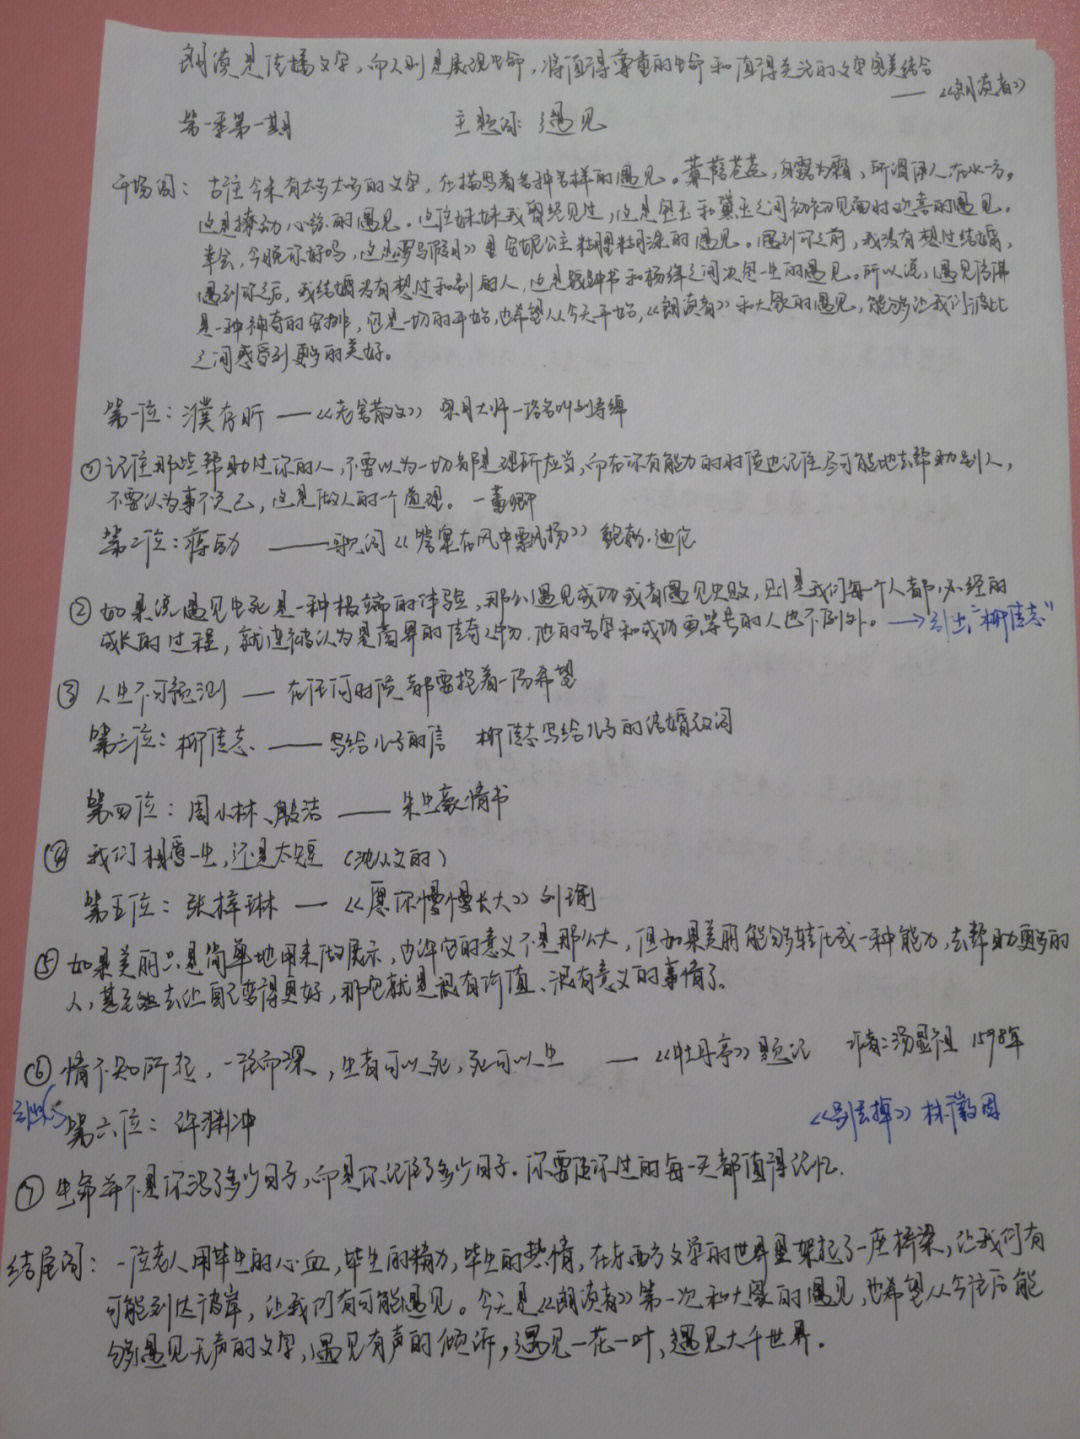 朗读是传播文字,而人则是展现生命,将值得尊重的生命和值得关注的文字完美结合
——《朗读者》
第一季第一期 主题词:遇见
开场词:古往今来有太多太多的文字,在描写着各种各样的遇见。蒹葭苍苍,白露为霜,所谓伊人在水一方。
这是撩动心弦的遇见。这位妹妹我曾经见过,这是宝玉和黛玉之间初初见面时欢喜的遇见。
幸会,今晚你好吗,这是《罗马假日》里安妮公主糊里糊涂的遇见。遇到你之前,我没有想过结婚,
遇到你之后,我结婚没有想过和别的人,这是钱钟书和杨绛之间决定一生的遇见。所以说,遇见仿佛
是一种神奇的安排,它是一切的开始,也希望从今天开始,《朗读者》和大家的遇见,能够让我们彼此
之间感受到更多的美好。
第一位:濮存昕 ——《老舍散文》 宗月大师一路名叫刘寿绵
①记住那些帮助过你的人,不要以为一切都是理所应当,而在你有能力的时候也记住尽可能地去帮助别人,
不要认为事不关己,这是做人的一个道理。 —董卿
第二位:蒋励 ——歌词《答案在风中飘扬》 鲍勃·迪伦
②如果说遇见生死是一种极端的体验,那么遇见成功或者遇见失败,则是我们每一个人都必经的
成长的过程,就连被认为是商界的传奇人物,他的名字和成功画等号的人也不例外。→引出"柳传志"
③人生不可预测 — 在任何时候都要抱着一份希望
第三位:柳传志 ——写给儿子的信 柳传志写给儿子的结婚致词
第四位:周小林、殷洁 ——朱生豪情书
④我们相爱一生,还是太短(沈从文的)
第五位:张梓琳 —《愿你慢慢长大》刘瑜
⑤如果美丽只是简单地用来做展示,也许它的意义不是那么大,但如果美丽能够转化成一种能力,去帮助更多的
人,甚至能去让自己变得更好,那它就是很有价值、很有意义的事情了。
⑥情不知所起,一往而深,生者可以死,死可以生 ——《牡丹亭》题记 作者:汤显祖 1598年
引出 第六位:许渊冲 《别丢掉》林徽因
⑦生命并不是你活了多少日子,而是你记住了多少日子.你要使你过的每一天都值得记忆.
结尾词:一位老人用毕生的心血,毕生的精力,毕生的热情,在东西方文学的世界里架起了一座桥梁,让我们有
可能到达彼岸,让我们有可能遇见。今天是《朗读者》第一次和大家的遇见,也希望从今往后能
够遇见无声的文字,遇见有声的倾诉,遇见一花一叶,遇见大千世界.